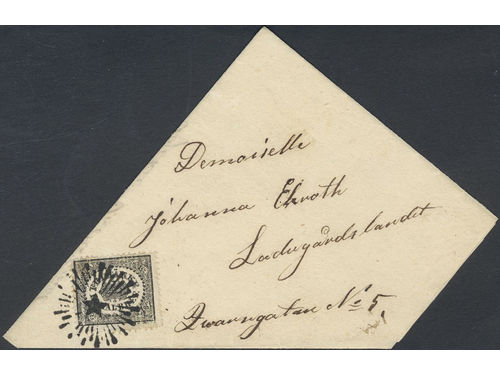 Demoiselle
Johanna Ekroth
Ladugårdslandet
Qwarngatan No 5.